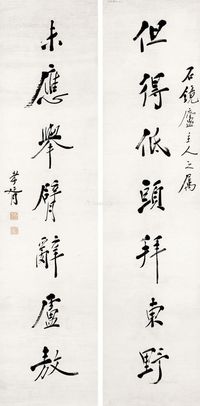 石鏡廬主人之属
但得低頭拜東野
未應舉臂辭盧敖